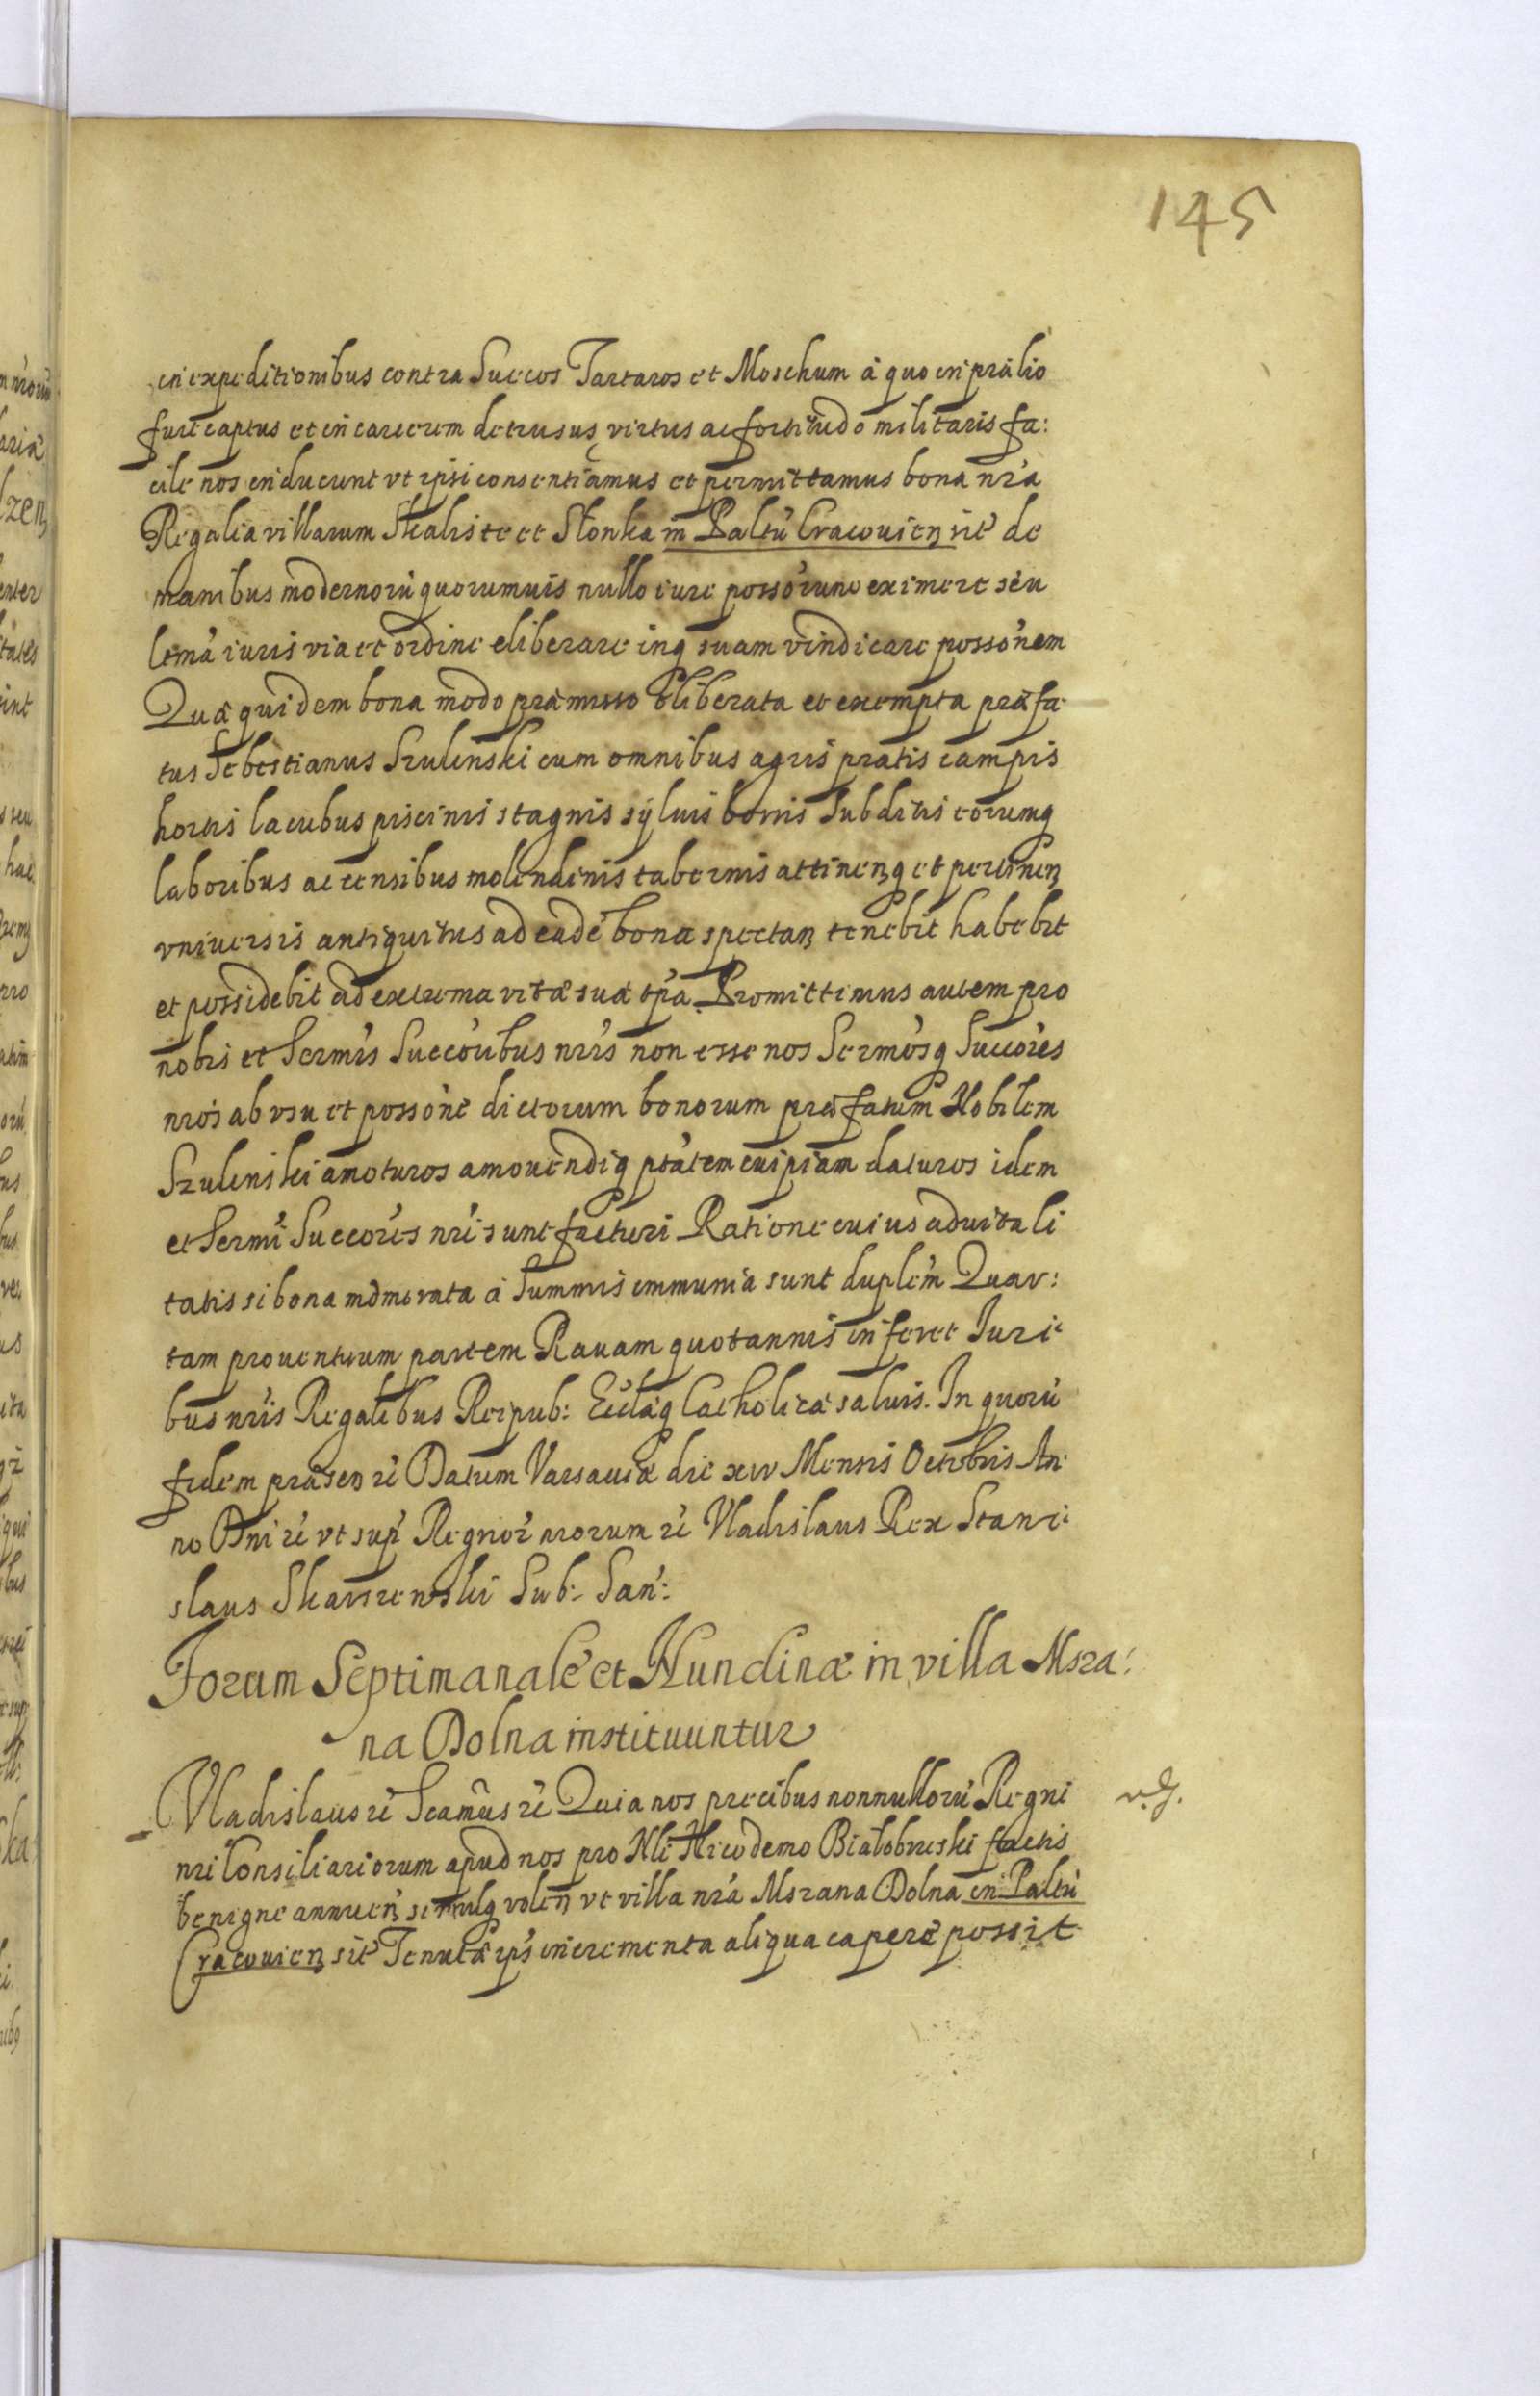 145
in expeditionibus contra Suecos Tartaros et Moschum à quo in prælio
fuit captus et in carcerem detrusus, virtus ac fortitudo militaris fa:
cile nos inducunt vt ipsi consentiamus et permittamus bona nr̃a
Regalia villarum Skaliste et Słonka in Paltũ Cracouien sit̃ de
manibus modernorũ quorumuis nullo iure possõrumo eximere seu
ltm̃a iuris via et ordine eliberare inq suam vindicare possõnem
Quæ quidem bona modo præmisso eliberata et exempta præfa
tus Sebestianus Szulinski cum omnibus agris pratis campis
hortis lacubus piscinis stagnis syluis borris subditis eorumq
laboribus ac censibus molendinis tabernis attinenq et pertinen
vniuersis antiquitus ad eadẽ bona spectan tenebit habebit
et possidebit ad extrema vitæ suæ tp̃a. Promittimus autem pro
nobis et Sermis̃ Succoribus̃ nr̃is non esse nos Sermosq̃ Succores̃
nr̃os ab vsu et possõne dictorum bonorum præfatum Nobilem
Szulinski amoturos amouendiq ptãtem cuipiam daturos idem
et Sermĩ Succores̃ nr̃i sunt facturi Ratione cuius aduitali
tatis si bona mẽmorata à summis immunia sunt duplẽm Quar:
tam prouentuum partem Rauam quotannis inferet Juri
bus nr̃is Regalibus Reipub: Ecclæq̃ Catholicæ saluis. In quorũ
fidem præsen rẽ Datum Varsauiæ die xiv Mensis Octobris An
no Dni rẽ vt sup̃ Regnor̃ nr̃orum rẽ Vladislaus Rex Stani
slaus Skarszewski Sub: San:
Forum Septimanale et Nundinæ in villa Msza:
na Dolna instituuntur
Vladislaus rẽ Scam̃us rẽ Quia nos precibus nonnullorũ Regni
nr̃i Consiliariorum apud nos pro Nli Nicodemo Białobrzeski factis
benigne annuen simulq volen vt villa nr̃a Mszana Dolna in Paltũ
Cracouien sit̃ Tenutæ ips̃ incrementa aliqua capere possit